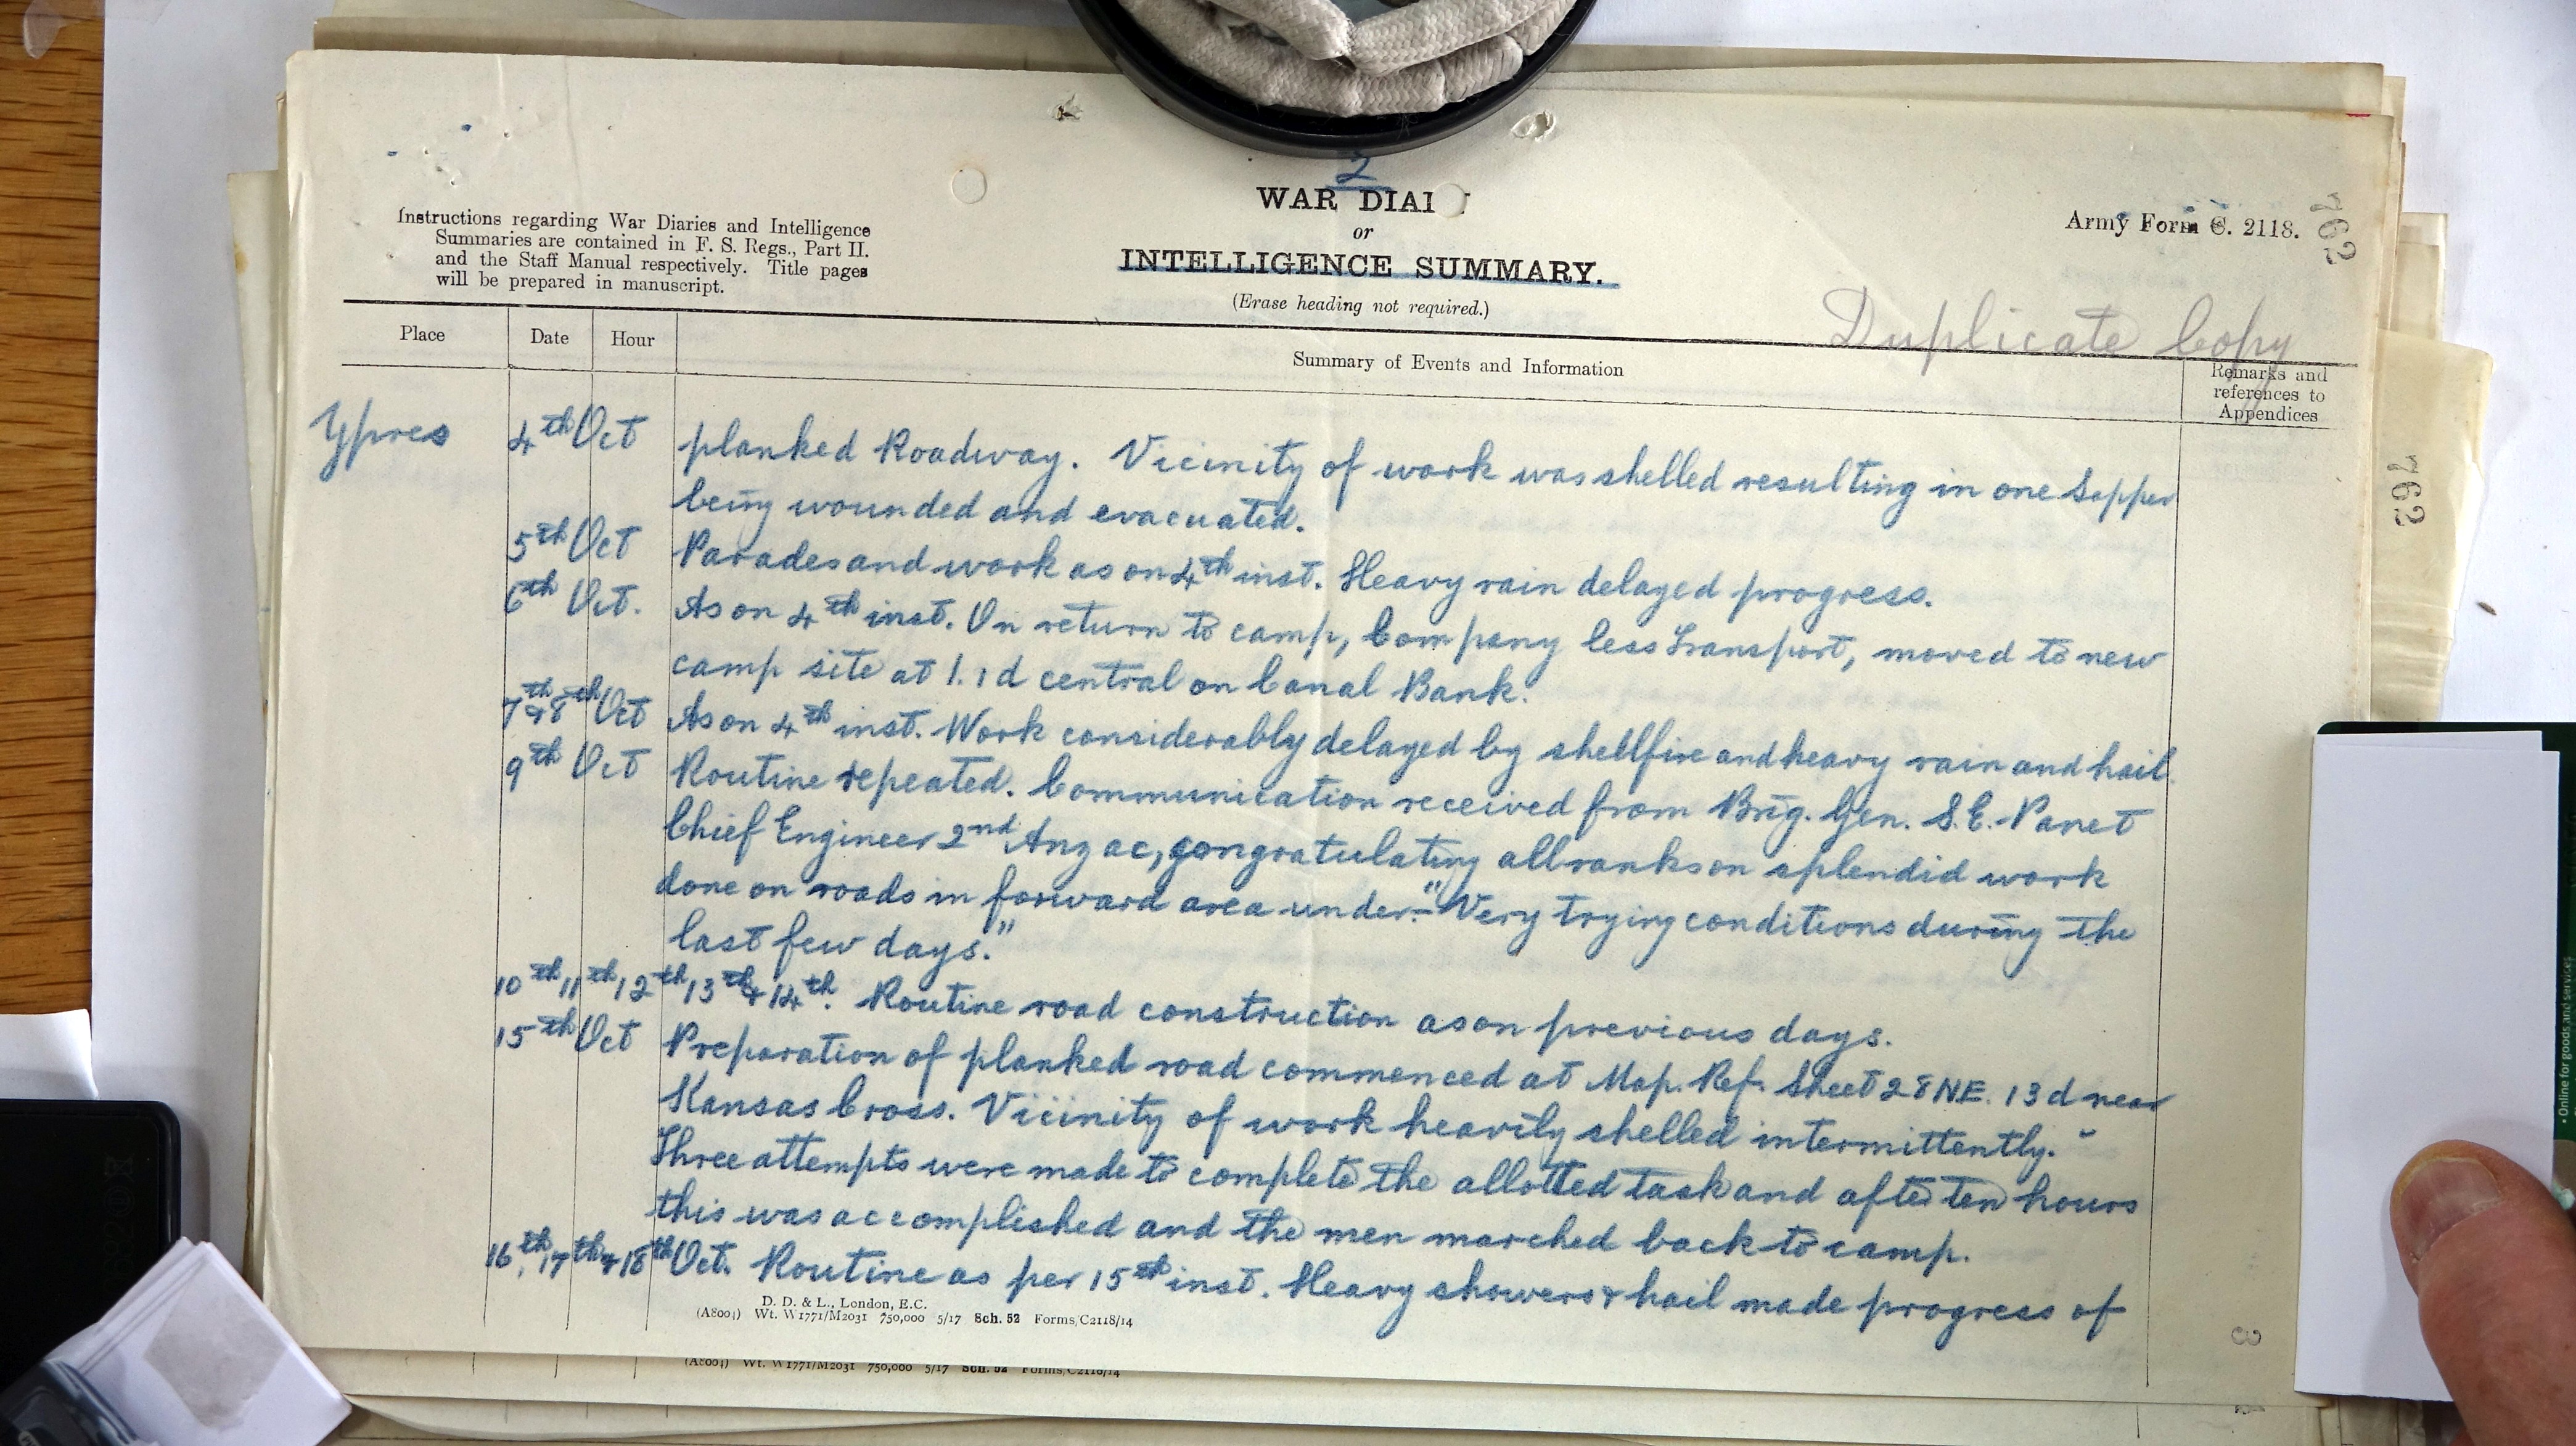 2
WAR DIA
or
INTELLIGENCE SUMMARY.
(Erase heading not required.)
Instructions regarding War Diaries and Intelligence
Summaries are contained in F. S. Regs., Part II.
and the Staff Manual respectively. Title pages
will be prepared in manuscript.
Army Form C. 2118.
762
Duplicate Copy
Place Date Hour Summary of Events and Information Remarks and
references to
Appendices
Ypres 4th Oct planked Roadway. Vicinity of work was shelled resulting in one Sapper
being wounded and evacuated.
5th Oct Parades and work as on 4th inst. Heavy rain delayed progress.
6th Oct. As on 4th inst. On return to camp, Company less Transport, moved to new
camp site at 1.1d central on Canal Bank.
7th & 8th Oct As on 4th inst. Work considerably delayed by shellfire and heavy rain and hail.
9th Oct Routine repeated. Communication received from Brig. Gen. S.E. Panet
Chief Engineer 2nd Anzac, congratulating all ranks on splendid work
done on roads in forward area under:- "Very trying conditions during the
last few days."
10th, 11th, 12th, 13th & 14th. Routine road construction as on previous days.
15th Oct Preparation of planked road commenced at Map. Ref. Sheet 28 NE. 13d near
Kansas Cross. Vicinity of work heavily shelled intermittently.
Three attempts were made to complete the allotted task and afte ten hours
this was accomplished and the men marched back to camp.
16th, 17th & 18th Oct. Routine as per 15th inst. Heavy showers & hail made progress of
D. D. & L., London, E.C.
(A8001) Wt. W1771/M2031 750,000 5/17 Sch. 52 Forms/C2118/14
(A8001) Wt. W1771/M2031 750,000 5/17 Sch. 52 Forms/C2118/14
762
3
• Online for goods and services